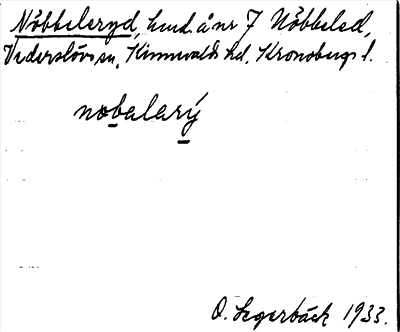 Nöbbeleryd, hmd. å nr 7 Nöbbeled,
Vederslövs sn, Kinnevalds hd, Kronobergs l.
nobalarý
O. Segerbäck 1933.